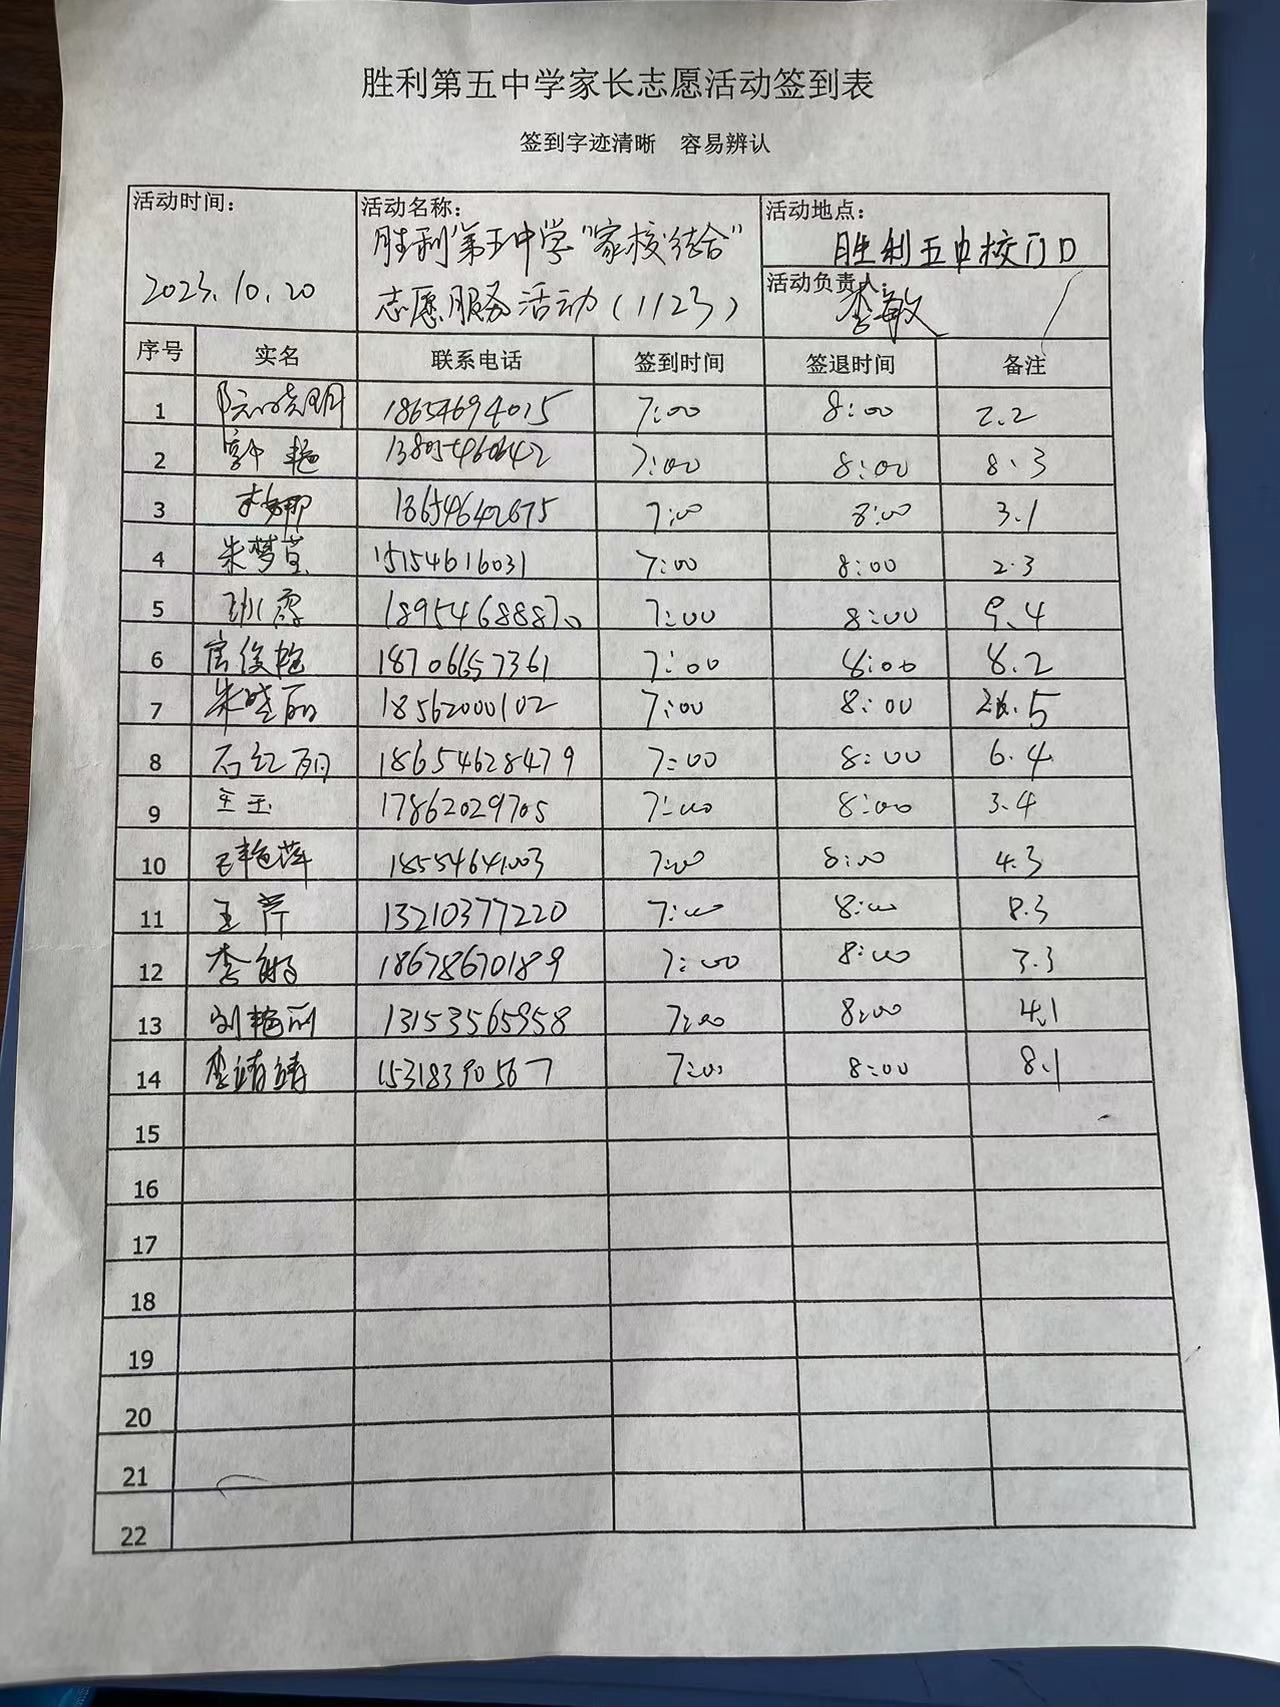 胜利第五中学家长志愿活动签到表
签到字迹清晰 容易辨认
活动时间: 活动名称: 活动地点:
胜利第五中学"家校结合" 胜利五中校门口
2023.10.20 志愿服务活动(1123) 活动负责人: 李敏
序号 实名 联系电话 签到时间 签退时间 备注
1 18654694015 7:00 8:00 2.2
2 郭艳 13805460642 7:00 8:00 8.3
3 18654642675 7:00 8:00 3.1
4 朱梦莹 15154616031 7:00 8:00 2.3
5 18954688870 7:00 8:00 9.4
6 18706657361 7:00 8:00 8.2
7 朱晓丽 18562000102 7:00 8:00 .5
8 石红丽 18654628479 7:00 8:00 6.4
9 王玉 17862029705 7:00 8:00 3.4
10 王艳萍 18554641003 7:00 8:00 4.3
11 王芹 13210377220 7:00 8:00 8.3
12 李 18678670189 7:00 8:00 3.3
13 刘艳丽 13153565958 7:00 8:00 4.1
14 李靖靖 15318390567 7:00 8:00 8.1
15
16
17
18
19
20
21
22